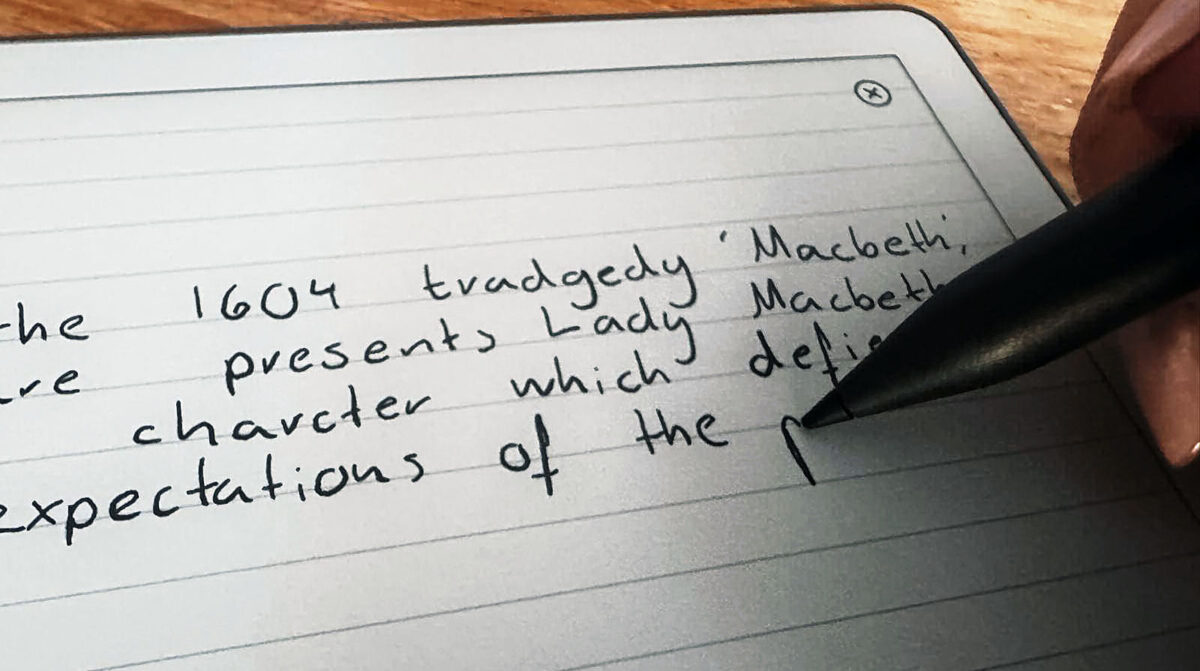 the 1604 tradgedy 'Macbeth',
presents Lady Macbeth
charcter which
expectations of the